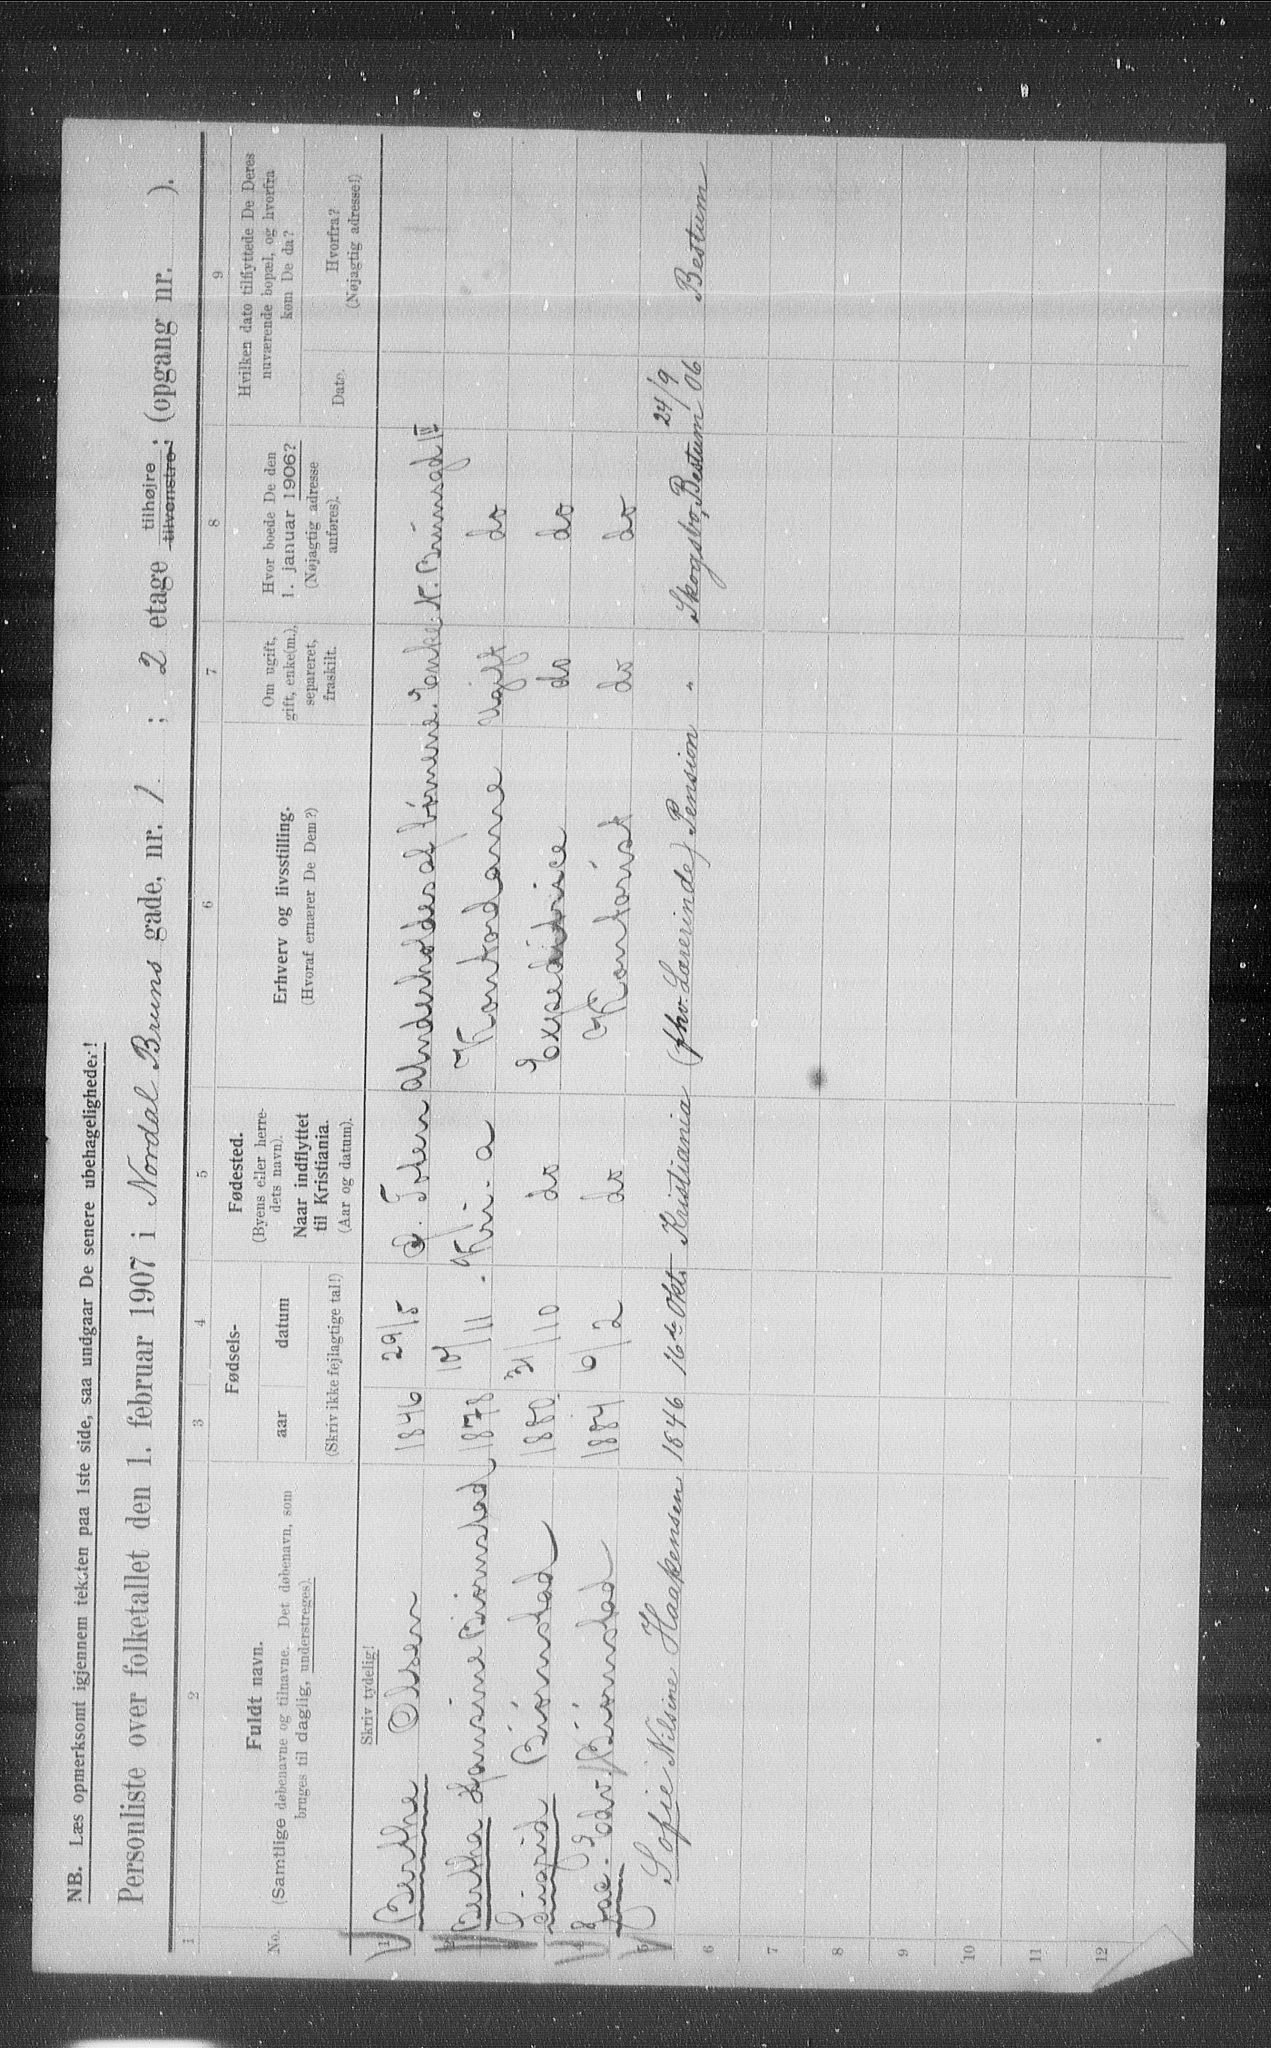 NB. Læs opmerksomt igjennem teksten paa 1ste side, saa undgaar De senere ubehageligheder!
Personliste over folketallet den 1. februar 1907 i Nordal Bruns gade, nr. 1. ; 2 etage tilhøjre tilvenstre; (opgang nr. ).
1 2 3 4 5 6 7 8 9
No.
Fuldt navn.
(Samtlige døbenavne og tilnavne. Det døbenavn, som
bruges til daglig, understreges).
Fødsels-
aar datum
(Skriv ikke fejlagtige tal!)
Fødested.
(Byens eller herre-
dets navn).
Naar indflyttet
til Kristiania.
(Aar og datum).
Erhverv og livsstilling.
(Hvoraf ernærer De Dem?)
Om ugift,
gift, enke(m.),
separeret,
fraskilt.
Hvor boede De den
1. januar 1906?
(Nøjagtig adresse
anføres).
Hvilken dato tilflyttede De Deres
nuværende bopæl, og hvorfra
kom De da?
Dato.
Hvorfra?
(Nøjagtig adresse!)
Skriv tydelig!
1 Berthe Olsen 1846 29/5 Ø. Toten Underholdes af börnene. Enke N. Brunsgd 1 IV
2 Bertha Hansine Biörnstad 1878 10/11 Kri-a Kontordame Ugift do
3 Sigrid Biörnstad 1880 31/10 do Expeditrice do do
4 Jac. Edv. Biörnstad 1884 6/2 do Kontorist do do
5 Sofie Nilsine Haakensen 1846 16de Okt. Kristiania (fhv. Lærerinde) Pension " Skogsbo, Bestum 24/9 06 Bestum
6
7
8
9
10
11
12